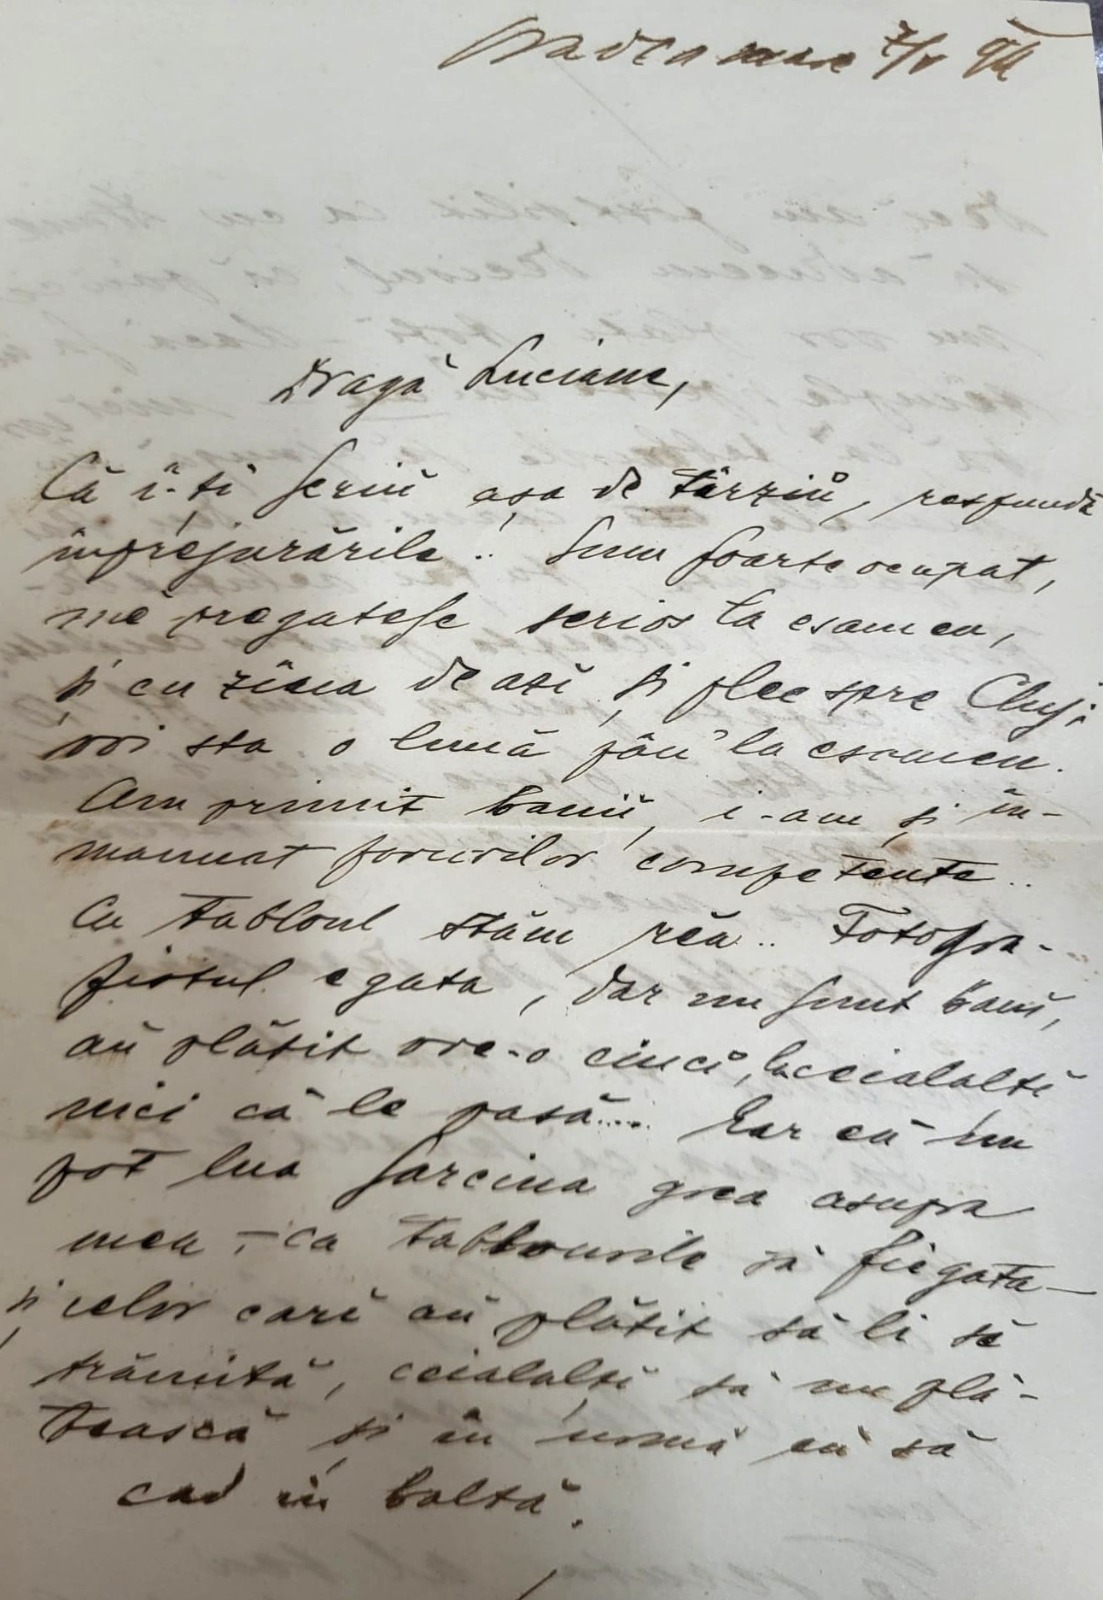 Oradea mare 7/V
Dragă Luciane,
Că î-ți scriŭ așa de târziŭ, respundă
împrejurările.. Sum foarte ocupat,
mĕ pregatesc serios la esamen,
și cu ziua de azi și plec spre Cluj;
voi sta o lună pân' la esamen.
Am primit baniĭ, i-am și în-
manuat forurilor competente..
Cu tabloul stăm rĕu.. Fotogra-
fistul e gata, dar nu sunt banĭ,
aŭ plătit vre-o cincĭ, ceialalțĭ
nici că le pasă.... Ear eŭ nu
pot lua sarcina grea asupra
mea, – ca tablourile să fie gata –
și celor carĭ aŭ plătit să li se
trămită, ceialalțĭ să nu plă-
tească și în urmă eŭ să
cad în baltă.